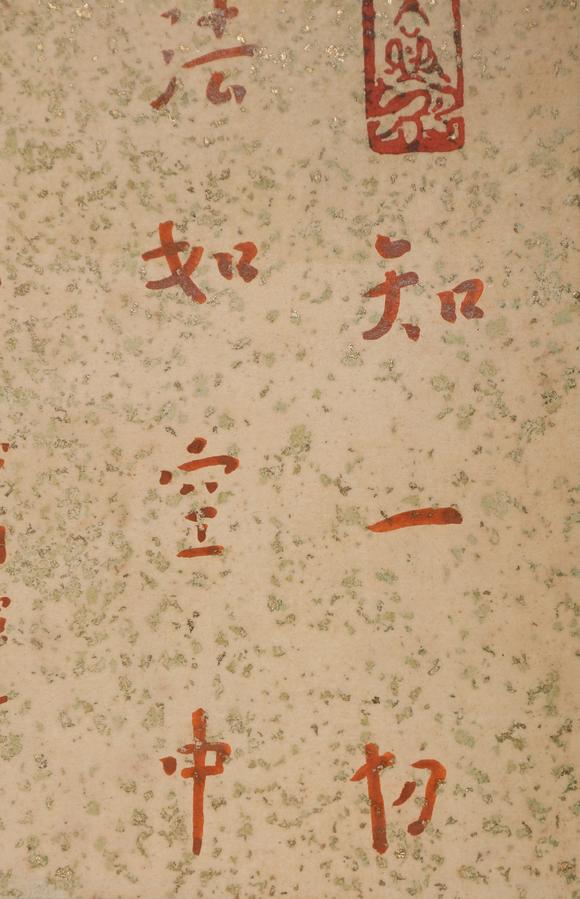 知一切
法如空中